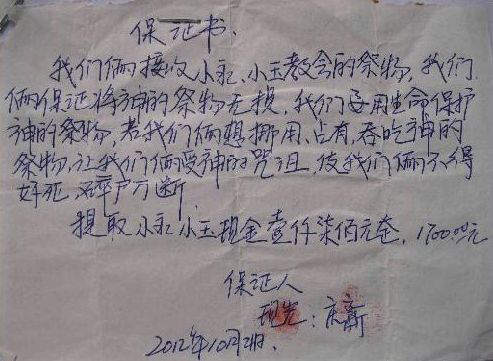 保证书.
我们俩接收小永、小玉教会的祭物,我们
俩保证将神的祭物无损,我们要用生命保护
神的祭物,若我们俩想挪用、占有、吞吃神的
祭物,让我们俩受神的咒诅,使我们俩不得
好死 碎尸万断.
提取小永 小玉现金壹仟柒佰元整. 1700.00元
保证人
现光: 庆新
2012年10月21日.